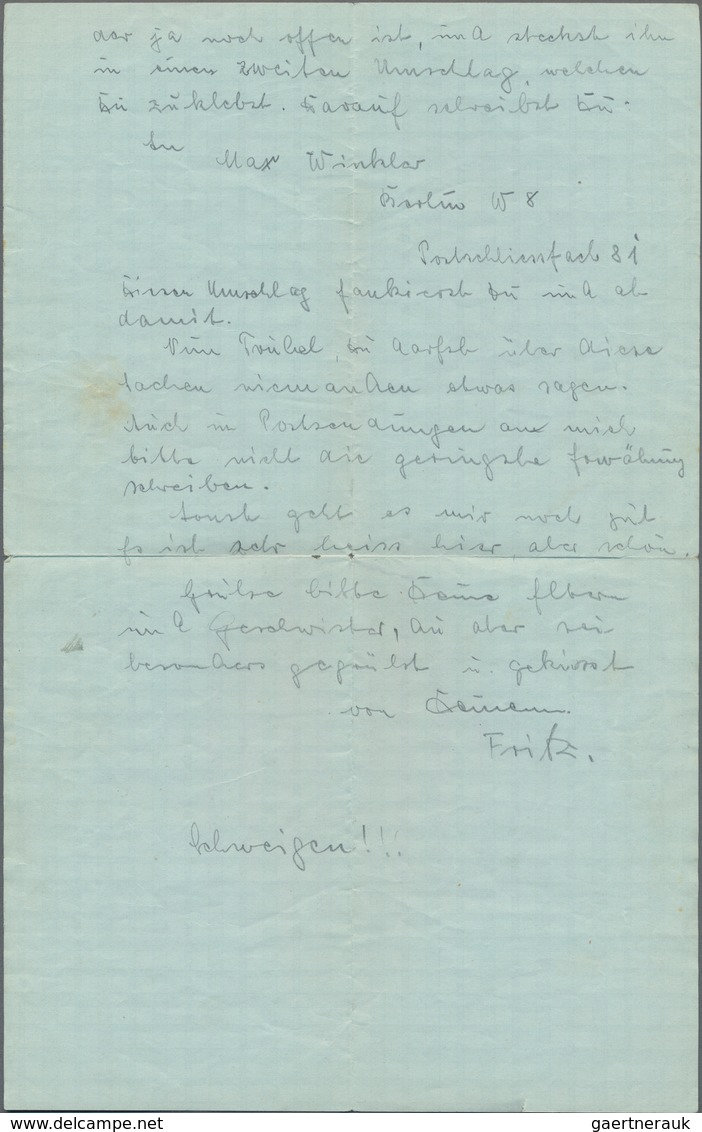 der ja noch offen ist, und steckst ihn
in einen zweiten Umschlag, welchen
Du zuklebst. Darauf schreibst Du.
An
Max Winkler
Berlin W 8
Postschliessfach 81
Diesen Umschlag fankierst Du und ab
damit.
Nun Trudel, Du darfst über diese
Sachen niemanden etwas sagen.
Auch in Postsendungen an mich
bitte nicht die geringste Erwähnung
schreiben.
Sonst geht es mir noch gut
Es ist sehr heiss hier, aber schön.
Grüsse bitte Deine Eltern
und Geschwister, Du aber sei
besonders gegrüsst u. geküsst
von Deinem
Fritz.
Schweigen!!!
gaertnerauk